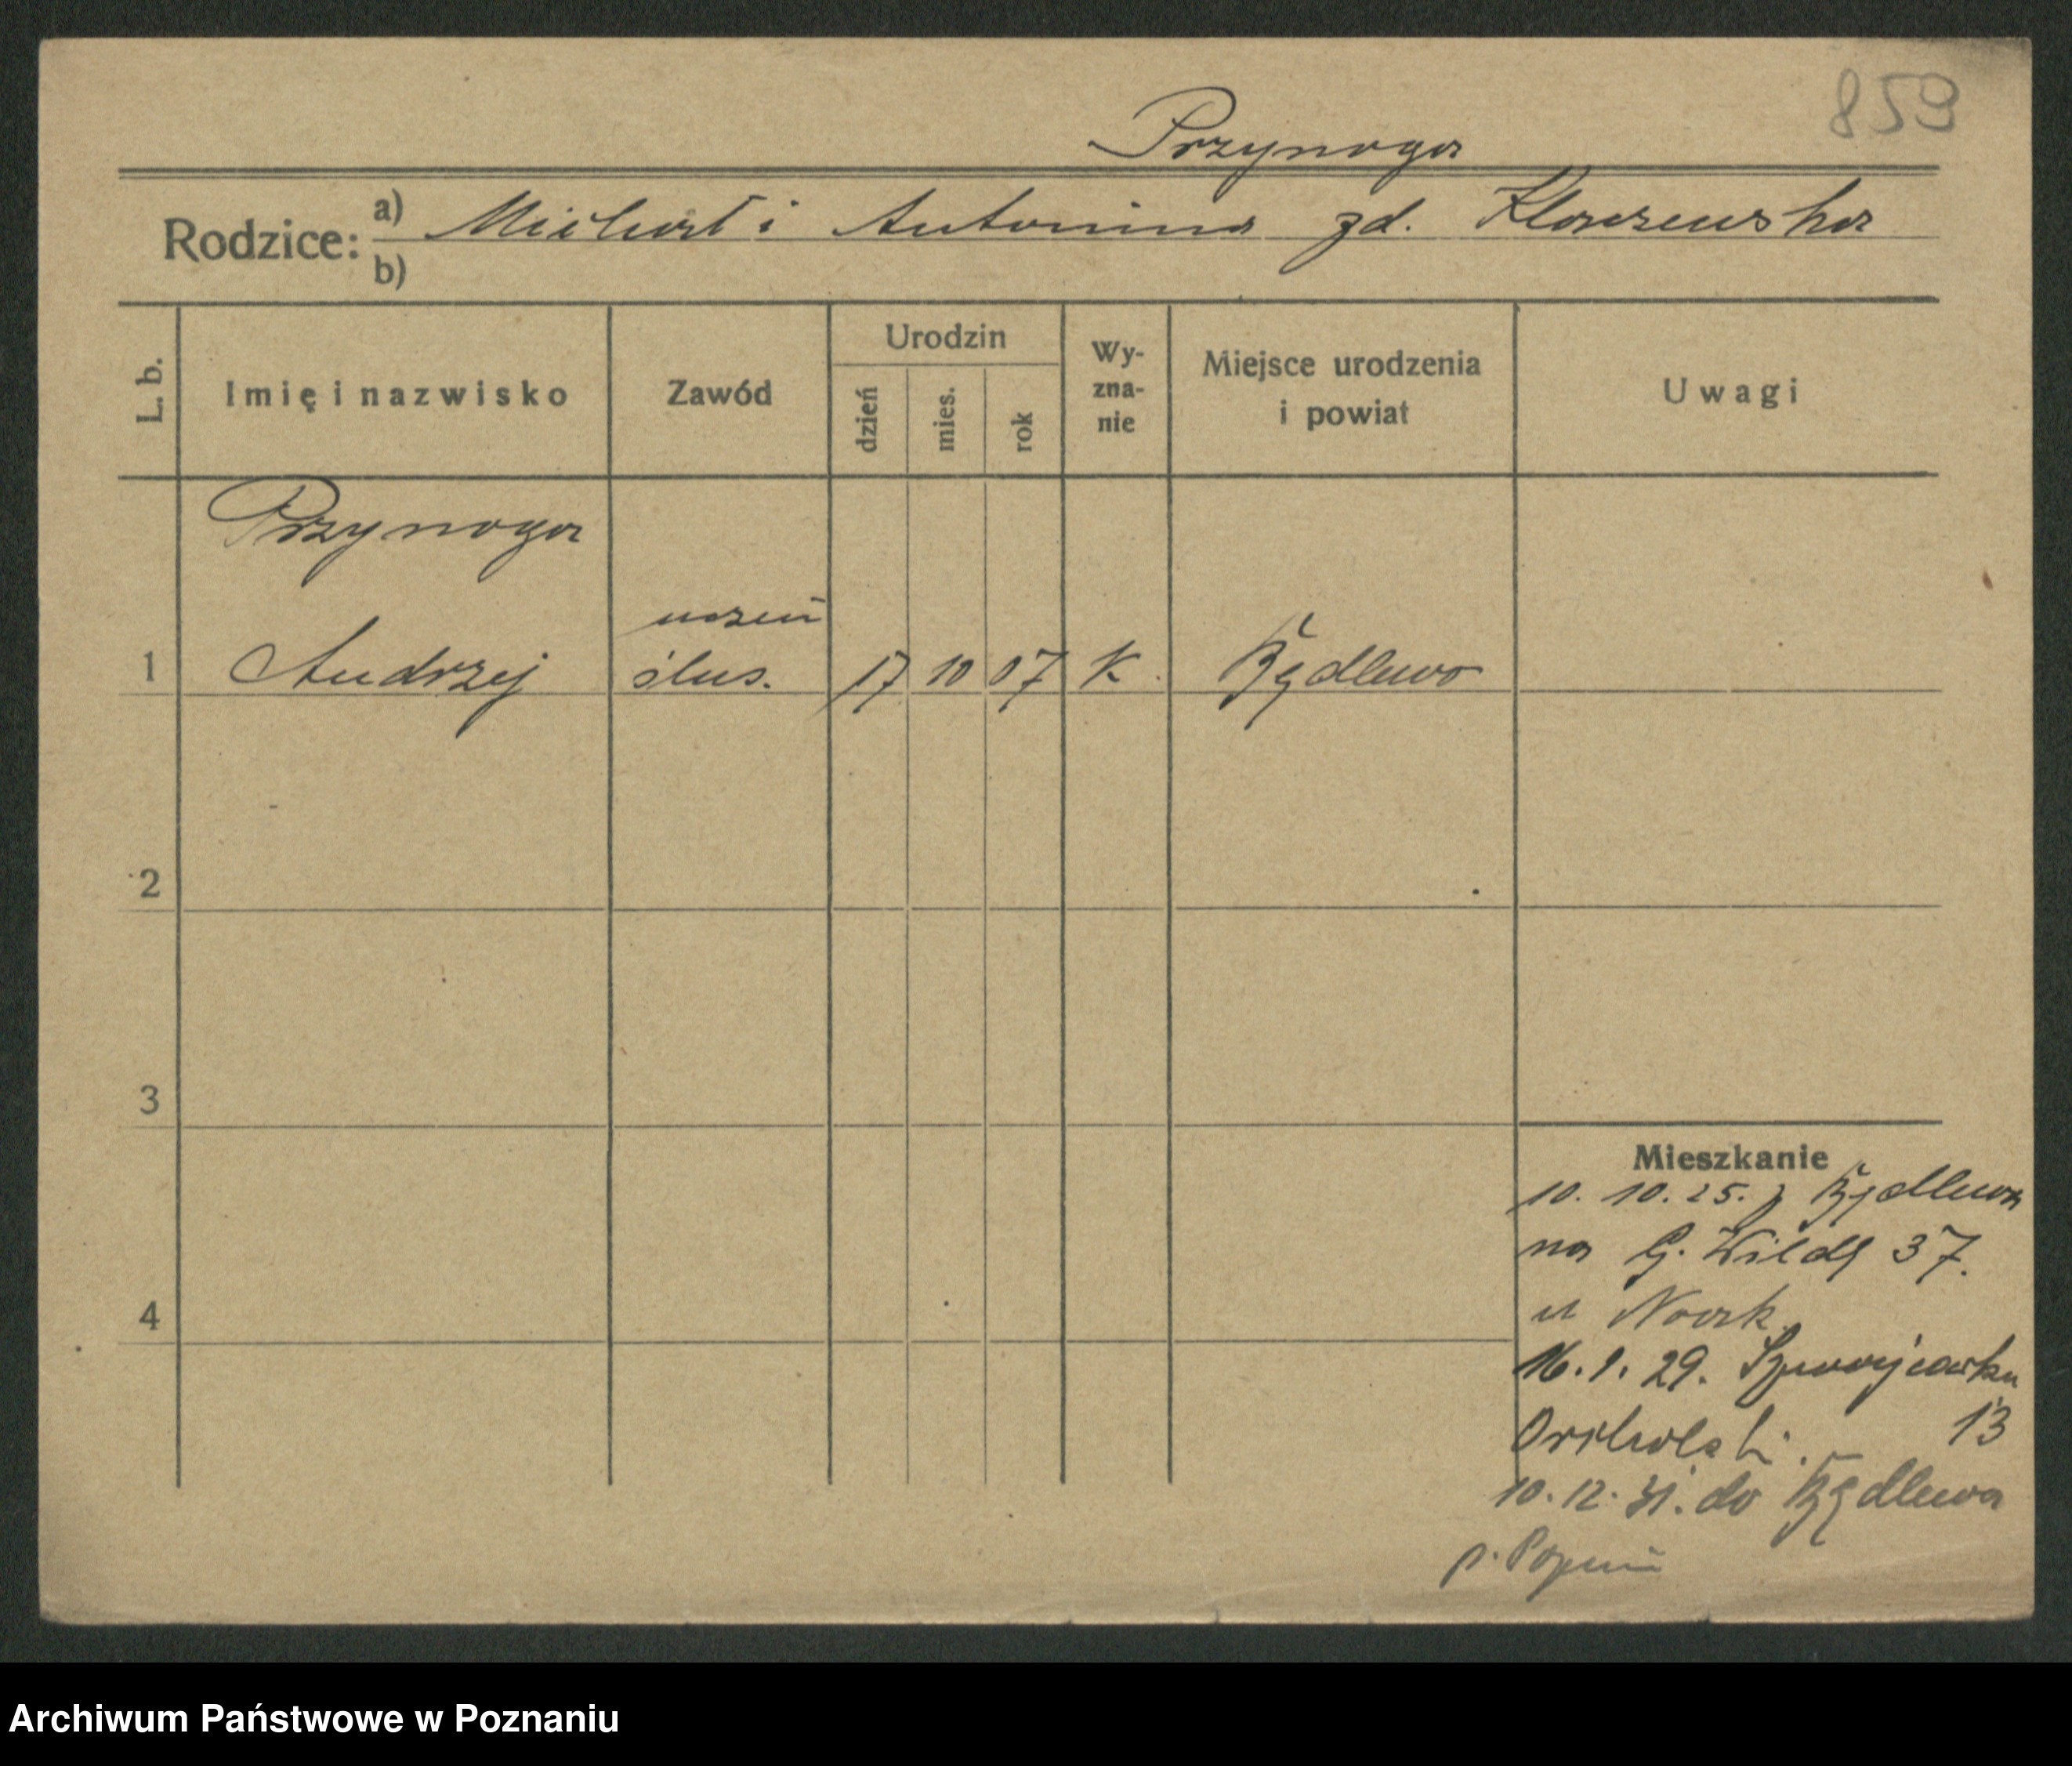 859
Przynoga
Rodzice: a) Michał i Antonina zd. Klaszewska
b)
L. b. Imię i nazwisko Zawód Urodzin dzień mies. rok Wy-zna-nie Miejsce urodzenia i powiat Uwagi
Przynoga
uczeń
1 Andrzej ślus. 17 10 07 K. Będlewo
2
3
Mieszkanie
10. 10. 25. z Będlewa
na G. Wildę 37.
4
u Noak
16. 1. 29. Szwajcarska
13
10. 12. 31. do Będlewa
p. Poznań
Archiwum Państwowe w Poznaniu